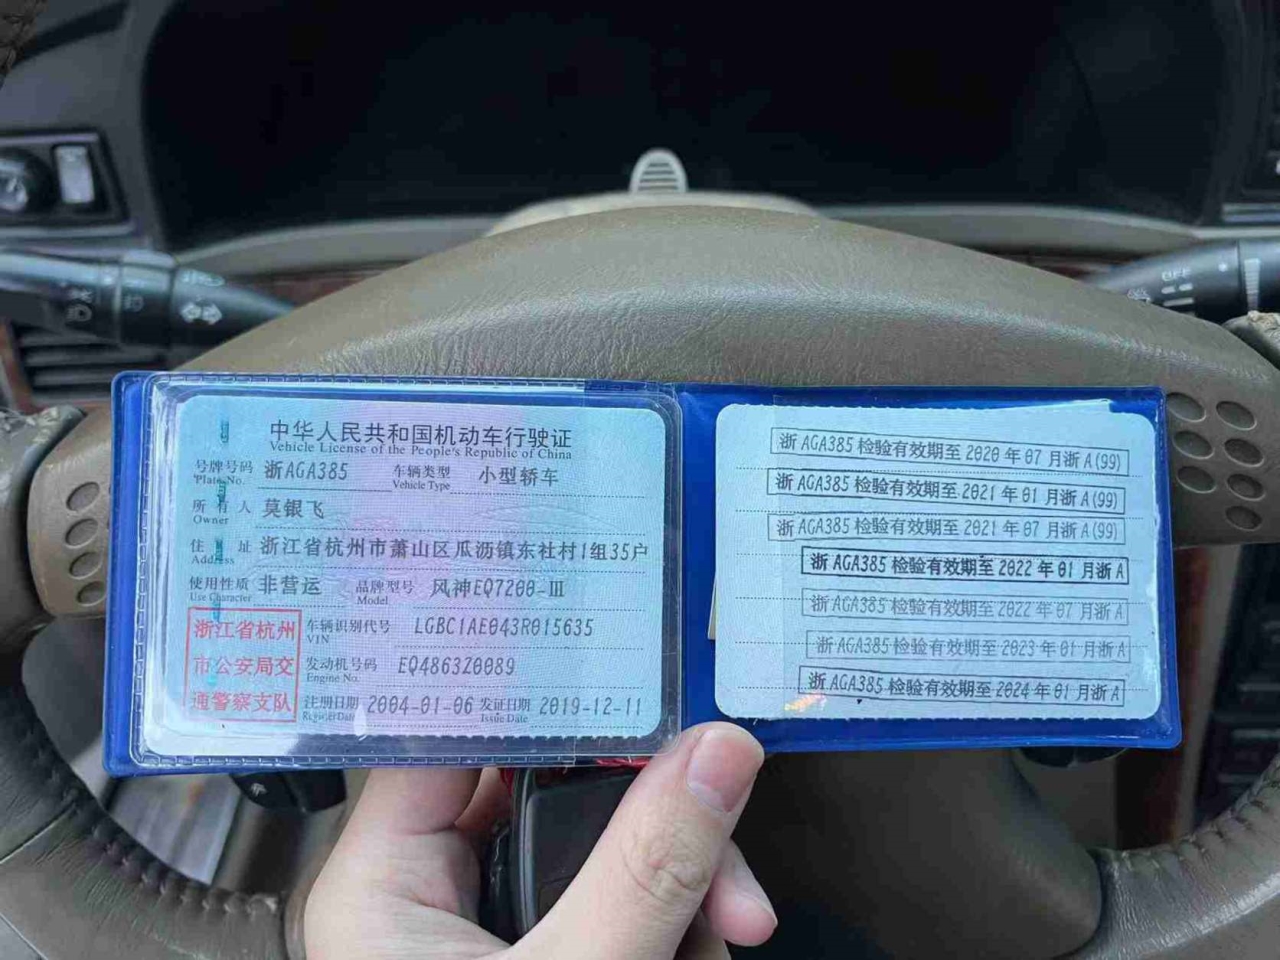 中华人民共和国机动车行驶证
Vehicle License of the People's Republic of China
号牌号码 浙AGA385 车辆类型 小型轿车
Plate No. Vehicle Type
所有人 莫银飞
Owner
住址 浙江省杭州市萧山区瓜沥镇东社村1组35户
Address
使用性质 非营运 品牌型号 风神EQ7200-III
Use Character Model
浙江省杭州
市公安局交
通警察支队
车辆识别代号 LGBC1AE043R015635
VIN
发动机号码 EQ486320089
Engine No.
注册日期 2004-01-06 发证日期 2019-12-11
Register Date Issue Date
浙AGA385 检验有效期至 2020 年 07 月浙A(99)
浙AGA385 检验有效期至 2021 年 01 月浙A(99)
浙AGA385 检验有效期至 2021 年 07 月浙A(99)
浙AGA385 检验有效期至 2022 年 01 月浙A
浙AGA385 检验有效期至 2022 年 07 月浙A
浙AGA385 检验有效期至 2023 年 01 月浙A
浙AGA385 检验有效期至 2024 年 01 月浙A
OFF